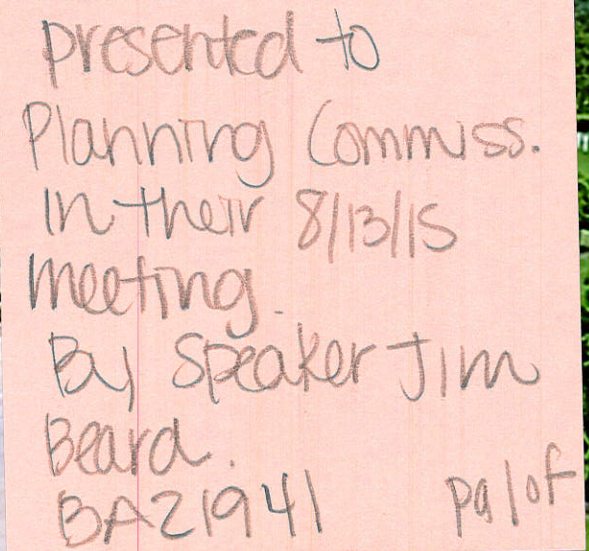 presented to
Planning Commiss.
In their 8/13/15
meeting.
By Speaker Jim
Beard.
BA21941 pg 1 of